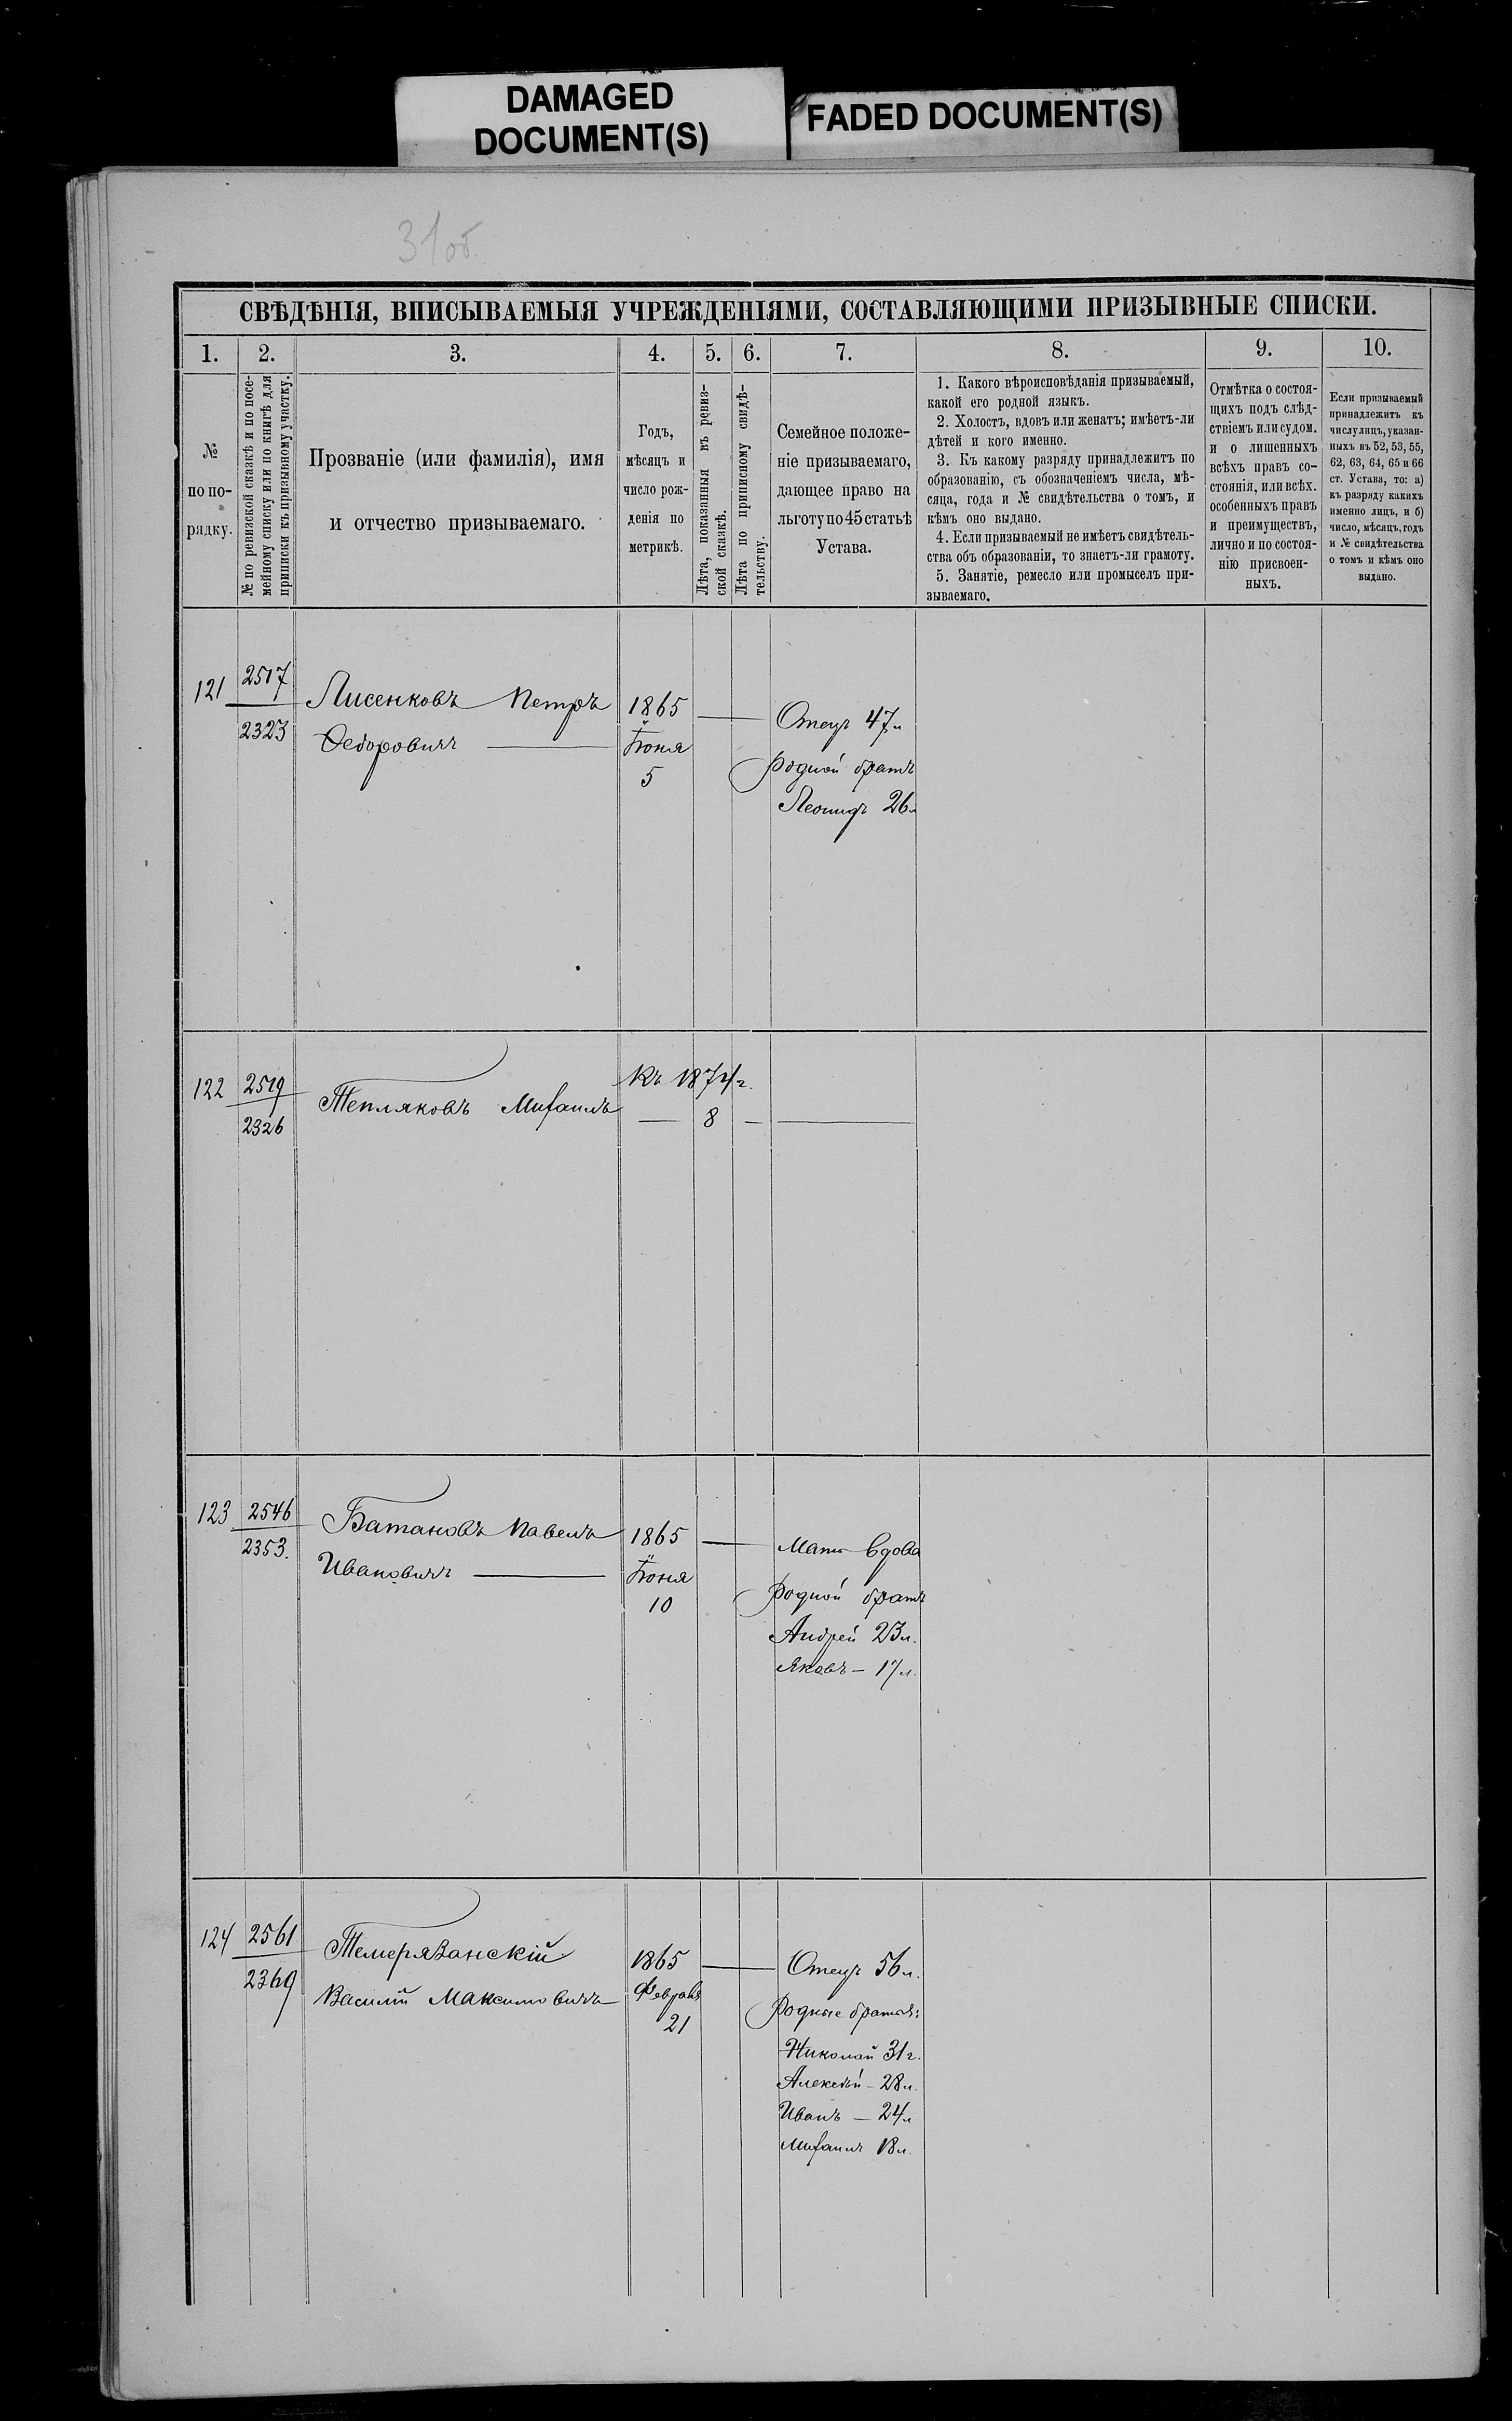 DAMAGED
DOCUMENT(S)
FADED DOCUMENT(S)
31об.
СВѢДѢНІЯ, ВПИСЫВАЕМЫЯ УЧРЕЖДЕНІЯМИ, СОСТАВЛЯЮЩИМИ ПРИЗЫВНЫЕ СПИСКИ.
1.
2.
3.
4.
5.
6.
7.
8.
9.
10.
№
по по-
рядку.
№ по ревизской сказкѣ и по посе-
мейному списку или по книгѣ для
приписки къ призывному участку.
Прозваніе (или фамилія), имя
и отчество призываемаго.
Годъ,
мѣсяцъ и
число рож-
денія по
метрикѣ.
Лѣта, показанныя въ ревиз-
ской сказкѣ.
Лѣта по приписному свидѣ-
тельству.
Семейное положе-
ніе призываемаго,
дающее право на
льготу по 45 статьѣ
Устава.
1. Какого вѣроисповѣданія призываемый,
какой его родной языкъ.
2. Холостъ, вдовъ или женатъ; имѣетъ-ли
дѣтей и кого именно.
3. Къ какому разряду принадлежитъ по
образованію, съ обозначеніемъ числа, мѣ-
сяца, года и № свидѣтельства о томъ, и
кѣмъ оно выдано.
4. Если призываемый не имѣетъ свидѣтель-
ства объ образованіи, то знаетъ-ли грамоту.
5. Занятіе, ремесло или промыселъ при-
зываемаго.
Отмѣтка о состоя-
щихъ подъ слѣд-
ствіемъ или судом.
и о лишенныхъ
всѣхъ правъ со-
стоянія, или всѣх.
особенныхъ правъ
и преимуществъ,
лично и по состоя-
нію присвоен-
ныхъ.
Если призываемый
принадлежитъ къ
числу лицъ, указан-
ныхъ въ 52, 53, 55,
62, 63, 64, 65 и 66
ст. Устава, то: а)
къ разряду какихъ
именно лицъ, и б)
число, мѣсяцъ, годъ
и № свидѣтельства
о томъ и кѣмъ оно
выдано.
121
2517
2323
Лисенковъ Петръ
Ѳедоровичъ —
1865
Іюня
5
—
Отецъ 47 л
Родной братъ
Леонидъ 26 л
122
2519
2326
Тепляковъ Михаилъ
Къ 1874 г.
— 8 — —
123
2546
2353.
Батановъ Павелъ
Ивановичъ —
1865
Іюня
10
—
Мать вдова
Родной братъ
Андрей 23 л.
Яковъ — 17 л.
124
2561
2369
Темерязанскій
Василій Максимовичъ —
1865
Февраля
21
—
Отецъ 56 л.
Родные братья:
Николай 31 г.
Алексѣй — 28 л.
Иванъ — 24 л
Михаилъ 18 л.